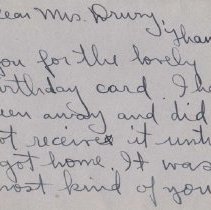 Dear Mrs. Drury,
Thank
you for the lovely
birthday card. I ha
een away and did
ot receive it unti
got home. It was
most kind of you